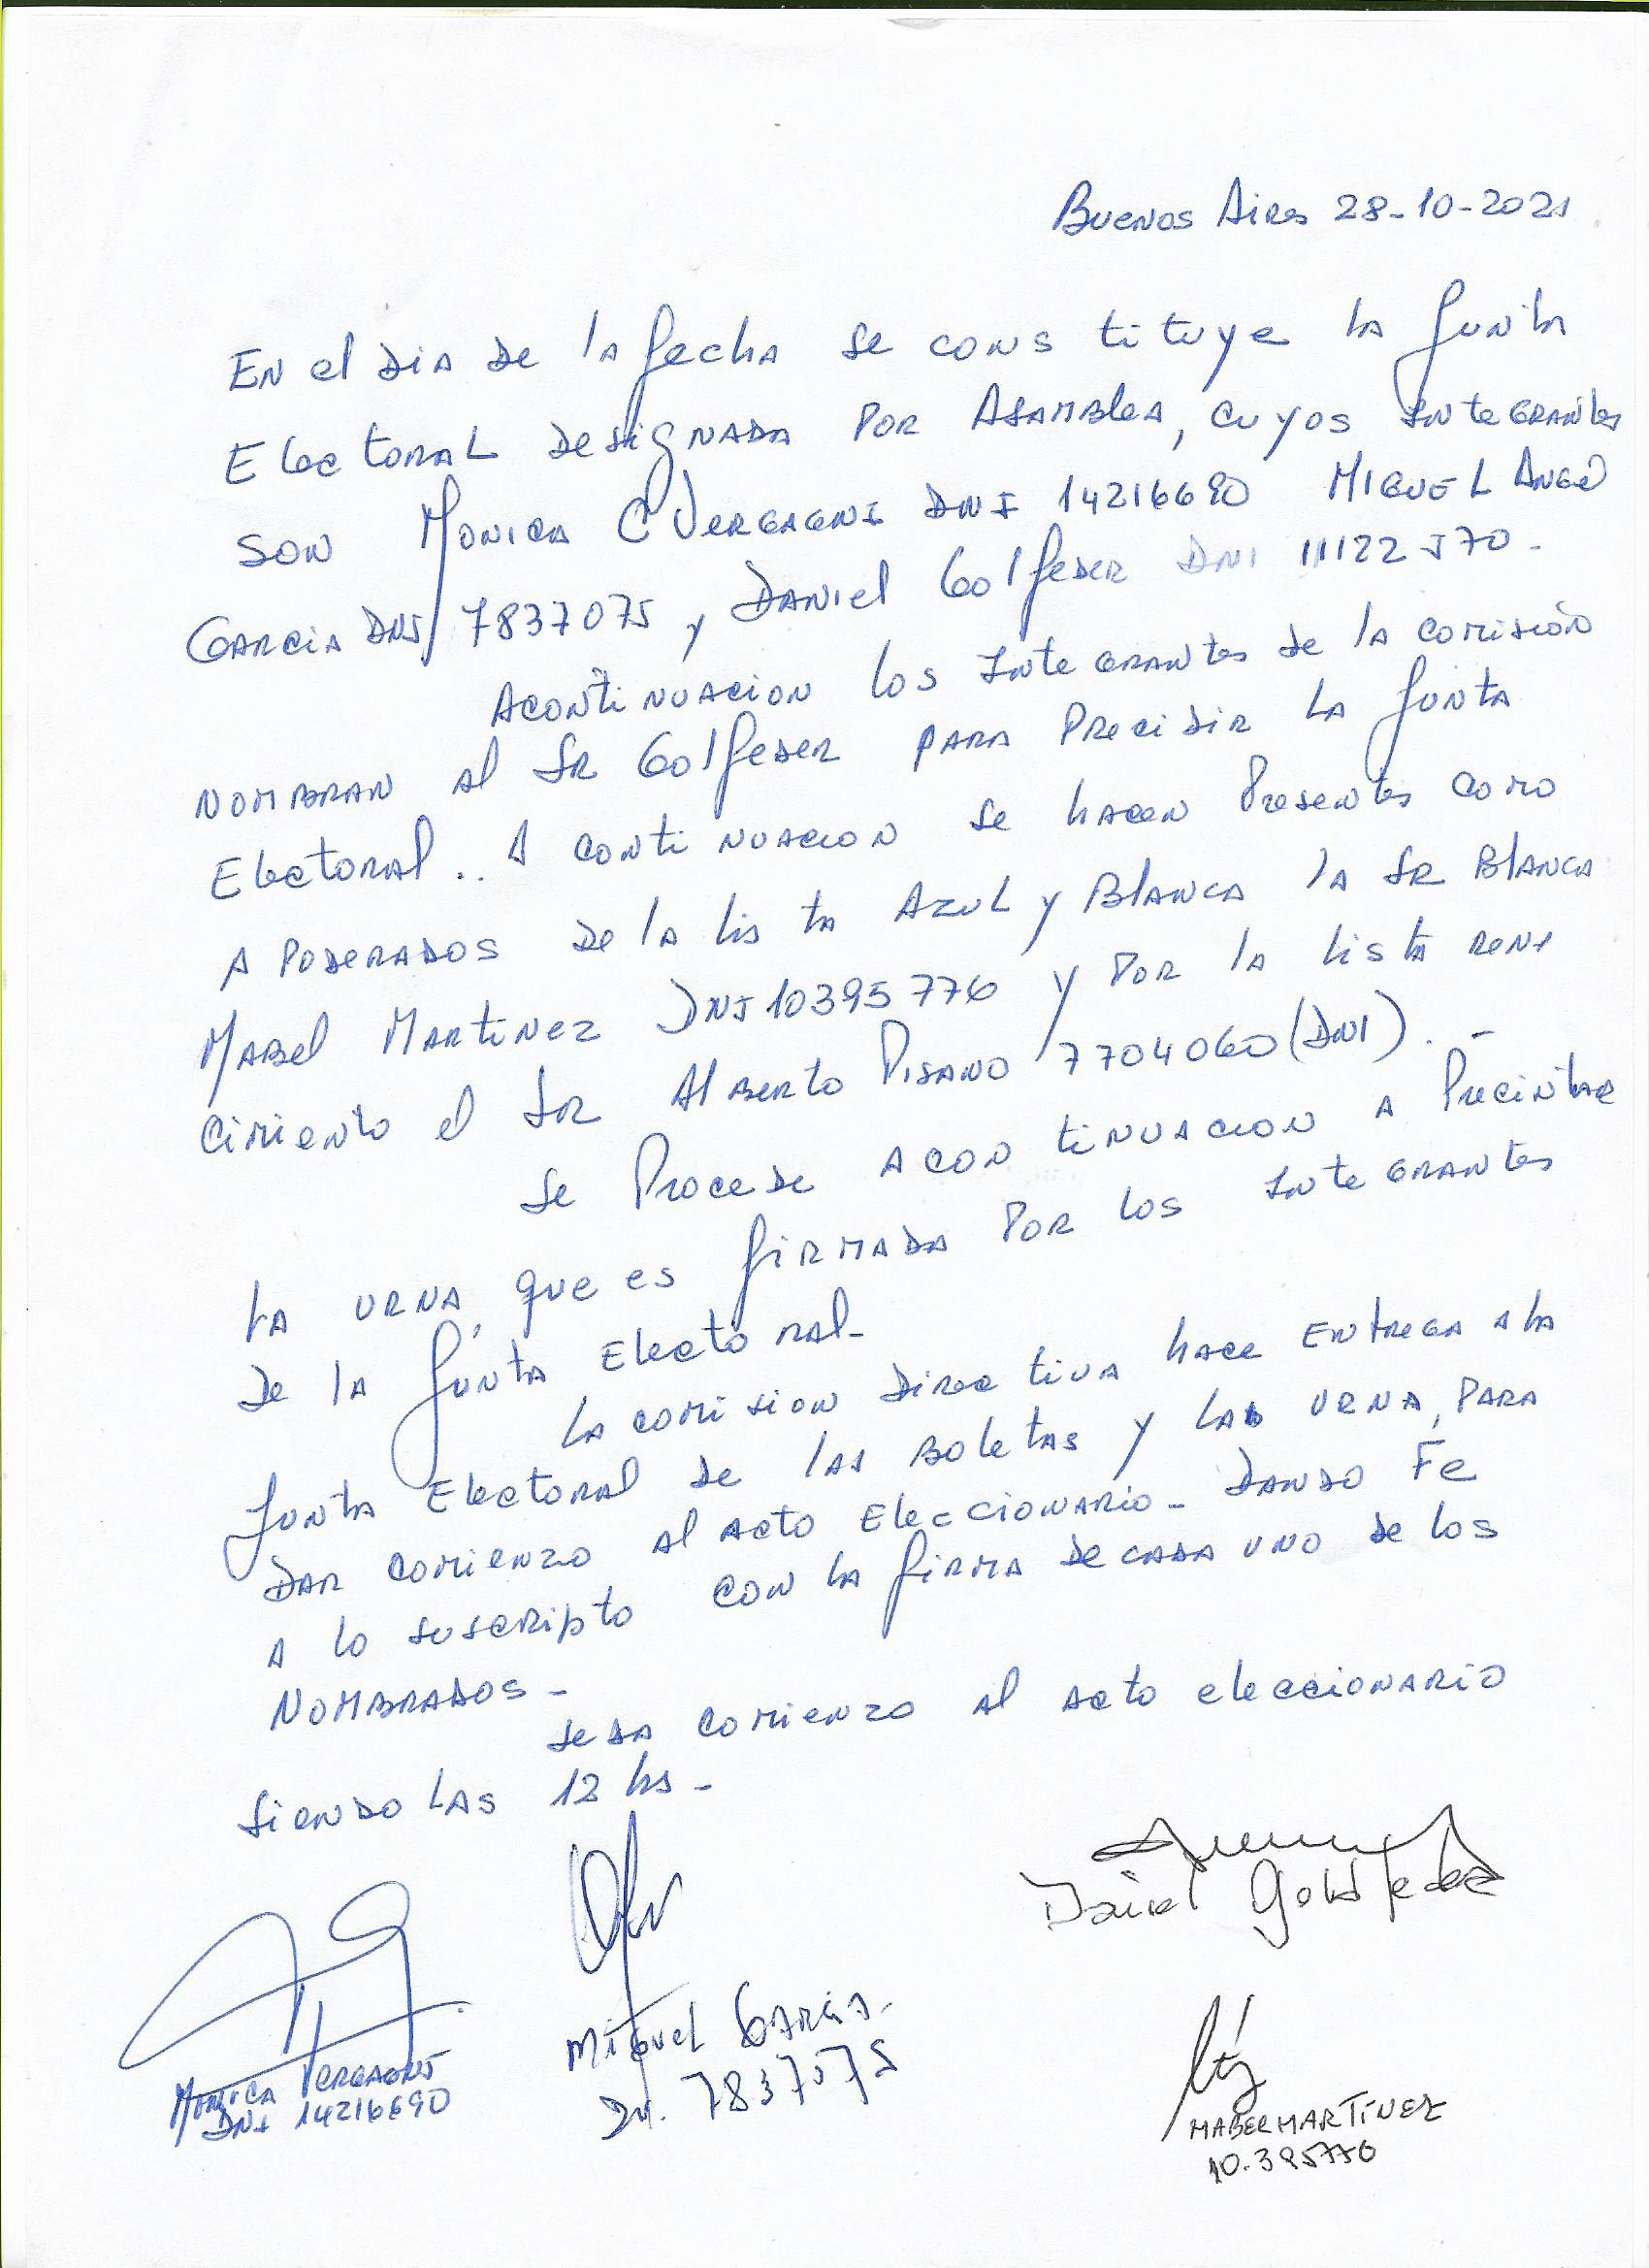 Buenos Aires 28-10-2021
En el dia de la fecha se constituye la Junta
Electoral designada por Asamblea, cuyos integrantes
son Monica C Vergagni DNI 14216690 Miguel Angel
Garcia DNI 7837075 y Daniel Golfeder DNI 11122570.
Acontinuacion los integrantes de la comisión
nombran al Sr Golfeder para precidir la Junta
Electoral.. A continuacion se hacen presentes como
apoderados de la lista Azul y Blanca la Sr Blanca
Mabel Martinez DNI 10395776 y por la lista rena
cimiento el Sr Alberto Pisano 7704060 (DNI). -
Se procede acontinuacion a precintar
la urna, que es firmada por los integrantes
de la Junta Electoral-
La comision directiva hace entrega a la
Junta Electoral de las boletas y la urna, para
dar comienzo al acto eleccionario- dando Fe
a lo suscripto con la firma de cada uno de los
nombrados-
Se da comienzo al acto eleccionario
siendo las 12 hs-
Daniel Goldfeder
Monica Vergagni
DNI 14216690
Miguel Garcia-
DNI. 7837075
MABEL MARTÍNEZ
10.395776